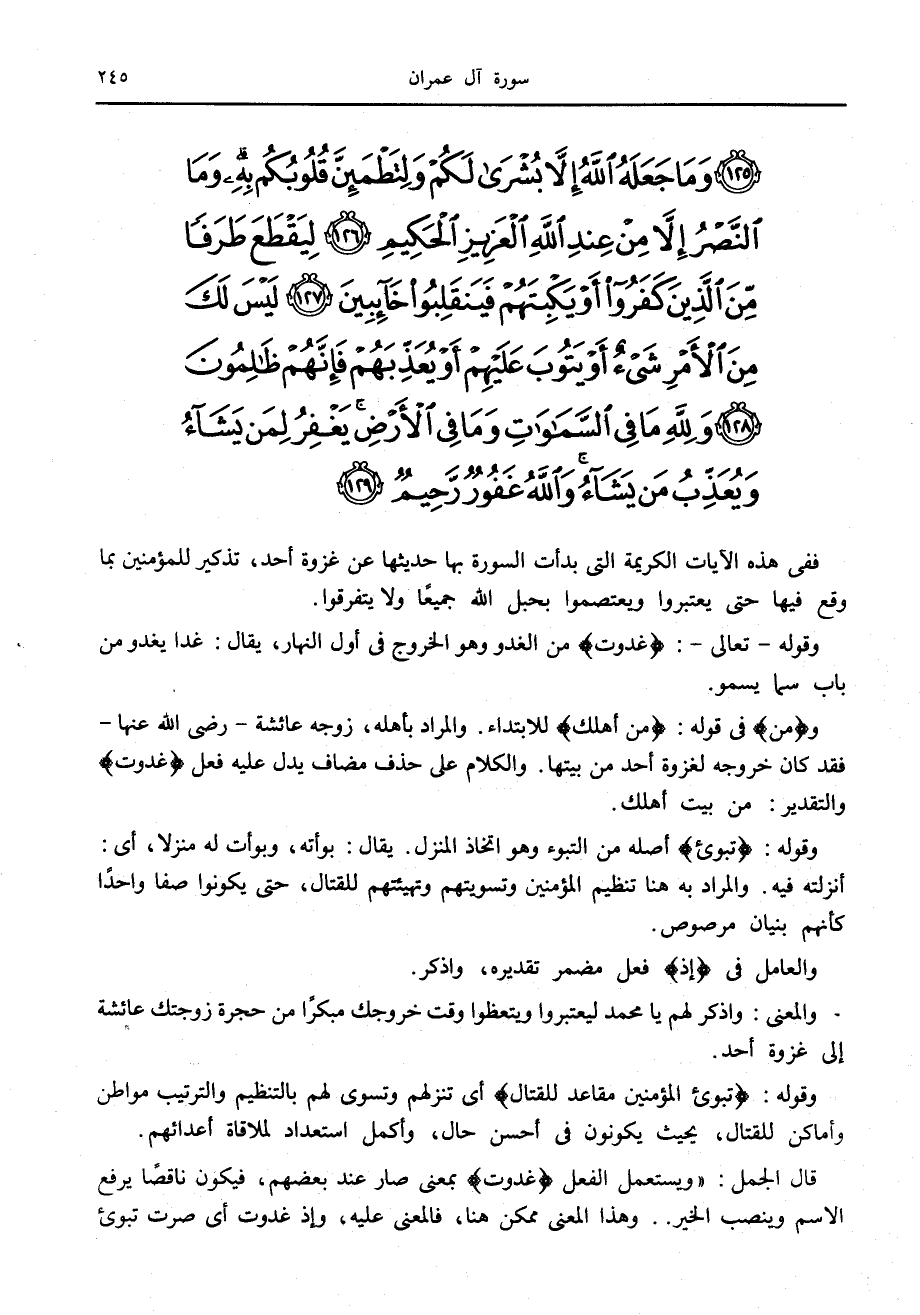 سورة آل عمران ٢٤٥
١٢٥ وَمَا جَعَلَهُ ٱللَّهُ إِلَّا بُشْرَىٰ لَكُمْ وَلِتَطْمَئِنَّ قُلُوبُكُم بِهِۦۗ وَمَا
ٱلنَّصْرُ إِلَّا مِنْ عِندِ ٱللَّهِ ٱلْعَزِيزِ ٱلْحَكِيمِ ١٢٦ لِيَقْطَعَ طَرَفًا
مِّنَ ٱلَّذِينَ كَفَرُوٓا۟ أَوْ يَكْبِتَهُمْ فَيَنقَلِبُوا۟ خَآئِبِينَ ١٢٧ لَيْسَ لَكَ
مِنَ ٱلْأَمْرِ شَىْءٌ أَوْ يَتُوبَ عَلَيْهِمْ أَوْ يُعَذِّبَهُمْ فَإِنَّهُمْ ظَٰلِمُونَ
١٢٨ وَلِلَّهِ مَا فِى ٱلسَّمَٰوَٰتِ وَمَا فِى ٱلْأَرْضِۚ يَغْفِرُ لِمَن يَشَآءُ
وَيُعَذِّبُ مَن يَشَآءُۚ وَٱللَّهُ غَفُورٌ رَّحِيمٌ ١٢٩
ففى هذه الآيات الكريمة التى بدأت السورة بها حديثها عن غزوة أحد، تذكير للمؤمنين بما
وقع فيها حتى يعتبروا ويعتصموا بحبل الله جميعًا ولا يتفرقوا.
وقوله - تعالى - : ﴿غدوت﴾ من الغدو وهو الخروج فى أول النهار، يقال : غدا يغدو من
باب سما يسمو.
و﴿من﴾ فى قوله : ﴿من أهلك﴾ للابتداء. والمراد بأهله، زوجه عائشة - رضى الله عنها -
فقد كان خروجه لغزوة أحد من بيتها. والكلام على حذف مضاف يدل عليه فعل ﴿غدوت﴾
والتقدير : من بيت أهلك.
وقوله : ﴿تبوئ﴾ أصله من التبوء وهو اتخاذ المنزل. يقال : بوأته، وبوأت له منزلا، أى :
أنزلته فيه. والمراد به هنا تنظيم المؤمنين وتسويتهم وتهيئتهم للقتال، حتى يكونوا صفا واحدًا
كأنهم بنيان مرصوص.
والعامل فى ﴿إذ﴾ فعل مضمر تقديره، واذكر.
والمعنى : واذكر لهم يا محمد ليعتبروا ويتعظوا وقت خروجك مبكرًا من حجرة زوجتك عائشة
إلى غزوة أحد.
وقوله : ﴿تبوئ المؤمنين مقاعد للقتال﴾ أى تنزلهم وتسوى لهم بالتنظيم والترتيب مواطن
وأماكن للقتال، بحيث يكونون فى أحسن حال، وأكمل استعداد لملاقاة أعدائهم.
قال الجمل : «ويستعمل الفعل ﴿غدوت﴾ بمعنى صار عند بعضهم، فيكون ناقصًا يرفع
الاسم وينصب الخبر.. وهذا المعنى ممكن هنا، فالمعنى عليه، وإذ غدوت أى صرت تبوئ